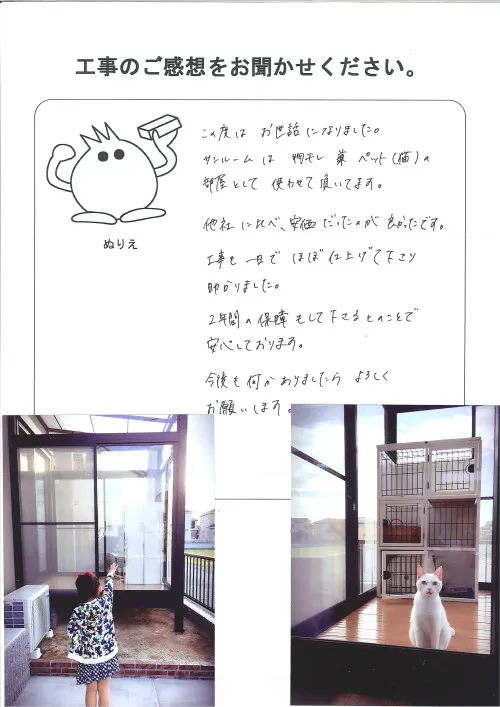 工事のご感想をお聞かせください。
ぬりえ
この度は お世話になりました。
サンルームは 物干し 兼 ペット(猫)の
部屋として 使わせて頂いてます。
他社に比べ、安価だったのが良かったです。
工事も一日でほぼ仕上げて下さり
助かりました。
2年間の保障もして下さるとのことで
安心しております。
今後も何かありましたら よろしく
お願いします。